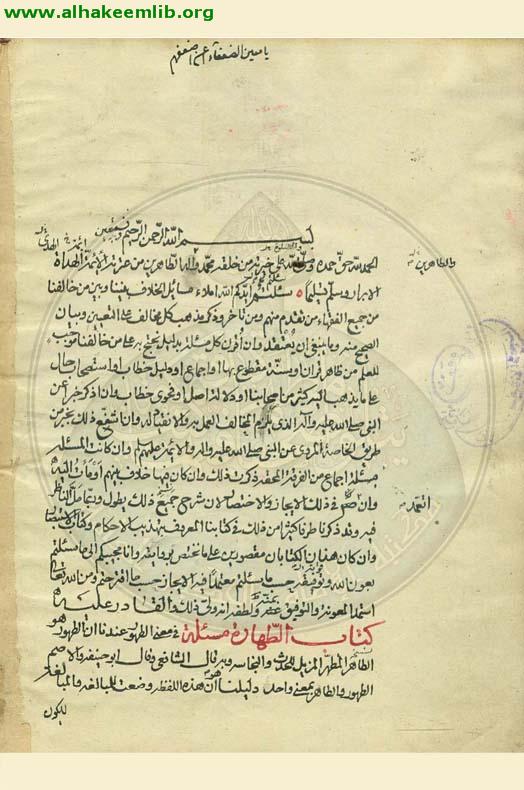 www.alhakeemlib.org
يا معين الضعفاء
بسم الله الرحمن الرحيم وبه نستعين
الحمد لله حق حمده وصلى الله على خيرته من خلقه محمد وآله الطاهرين من عترته الأئمة الهداة
والطاهرين
الأبرار وسلم تسليما سئلتم أيدكم الله املاء مسائل الخلاف بيننا وبين من خالفنا
من جميع الفقهاء من تقدم منهم ومن تأخر وذكر مذهب كل مخالف على التعيين وبيان
الصحيح منه وما ينبغي ان يعتقد وان أقرن كل مسئلة بدليل نحتج به على من خالفنا موجب
للعلم من ظاهر قران او سنة مقطوع بها او اجماع او دليل خطاب او استصحاب حال
على ما يذهب اليه كثير من أصحابنا او دلالة اصل او فحوى خطاب وان اذكر خبرا عن
النبي صلى الله عليه وآله الذي يلزم المخالف العمل به والانقياد له وان اشفع ذلك بخبر من
طريق الخاصة المروي عن النبي صلى الله عليه وآله والأئمة عليهم وان كانت المسئلة
مسئلة اجماع من الفرقة المحقة ذكرت ذلك وان كان فيها خلاف بينهم أومأت اليه
وان اتعمد في ذلك الايجاز والاختصار لان شرح جميع ذلك يطول
اتعمد
فيه وقد ذكرنا طرفا كثيرا من ذلك في كتابنا المعروف بتهذيب الاحكام وكتاب الاستبصار
وان كان هذان الكتابان مقصورين على ما يختص بروايته وانا مجيبكم الى ما سئلتم
بعون الله وتوفيقه حسب ما سئلتم معتمدا فيه الايجاز حسب ما اقترحتم ومن الله تعالى
استمد المعونة والتوفيق بمنه ولطفه انه ولي ذلك والقادر عليه
كتاب الطهارة مسئلة في معنى الطهور عندنا ان الطهور هو
الطاهر المطهر المزيل للحدث والنجاسة وبه قال الشافعي وقال ابو حنيفة والاصم
الطهور والطاهر بمعنى واحد دليلنا ان هذه اللفظة وضعت للمبالغة والمبالغة
لا يكون